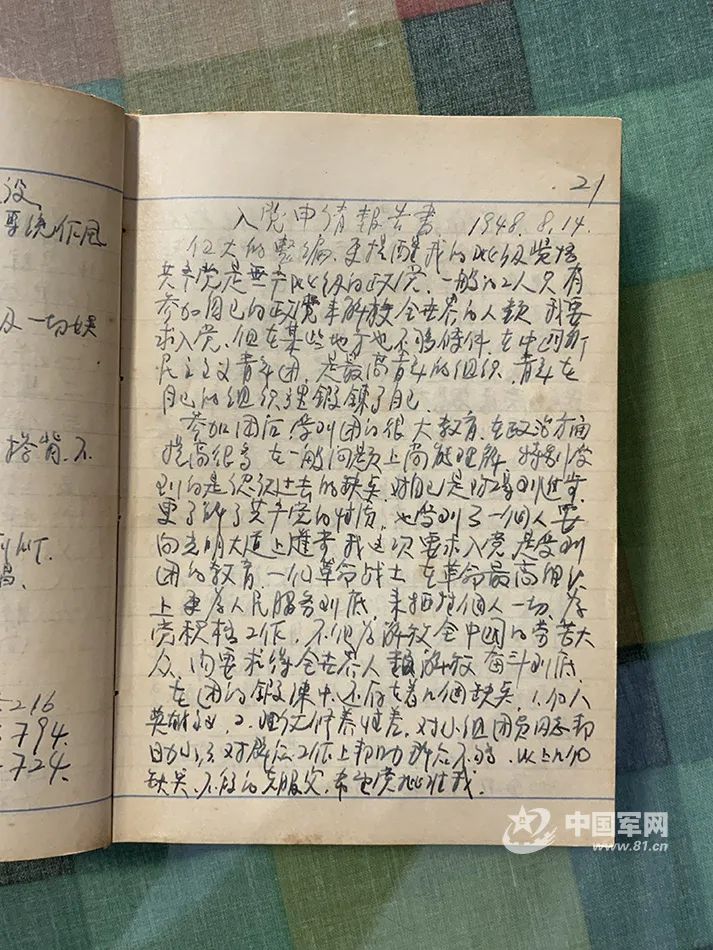 设
军统作风
及一切娱
搭背.不
216
794.
724.
.21
入党申请报告书 1948.8.14.
伟大的整编.更提醒我的阶级觉悟
共产党是无产阶级的政党.一般的工人只有
参加自己的政党来解放全世界的人类 我要
求入党.但在某些地方也不够条件.在中国新
民主主义青年团.是最高青年的组织.青年在
自己的组织里锻鍊了自己.
参加团后.受到团的很大教育.在政治方面
提高很高 在一般问题上尚能理解 特别受
到的是认识过去的缺点.对自己是
更了解了共产党的性质.也受到了一個人要
向光明大道上 我这次要求入党.是受到
团的教育 一個革命战士 在革命最高
上 为人民服务到底.来牺牲個人一切.为
党积极工作.不但为解放全中国的劳苦大
众.内要求得全世界人類解放 奋斗到底.
在团的锻鍊中.还存在着几個缺点.1.個人
英雄 2. 修养性差.对小组团员同志帮
助少.3.对群众工作上帮助 不够.以上几個
缺点.不够的克服 希望党批准我.
中国军网
www.81.cn